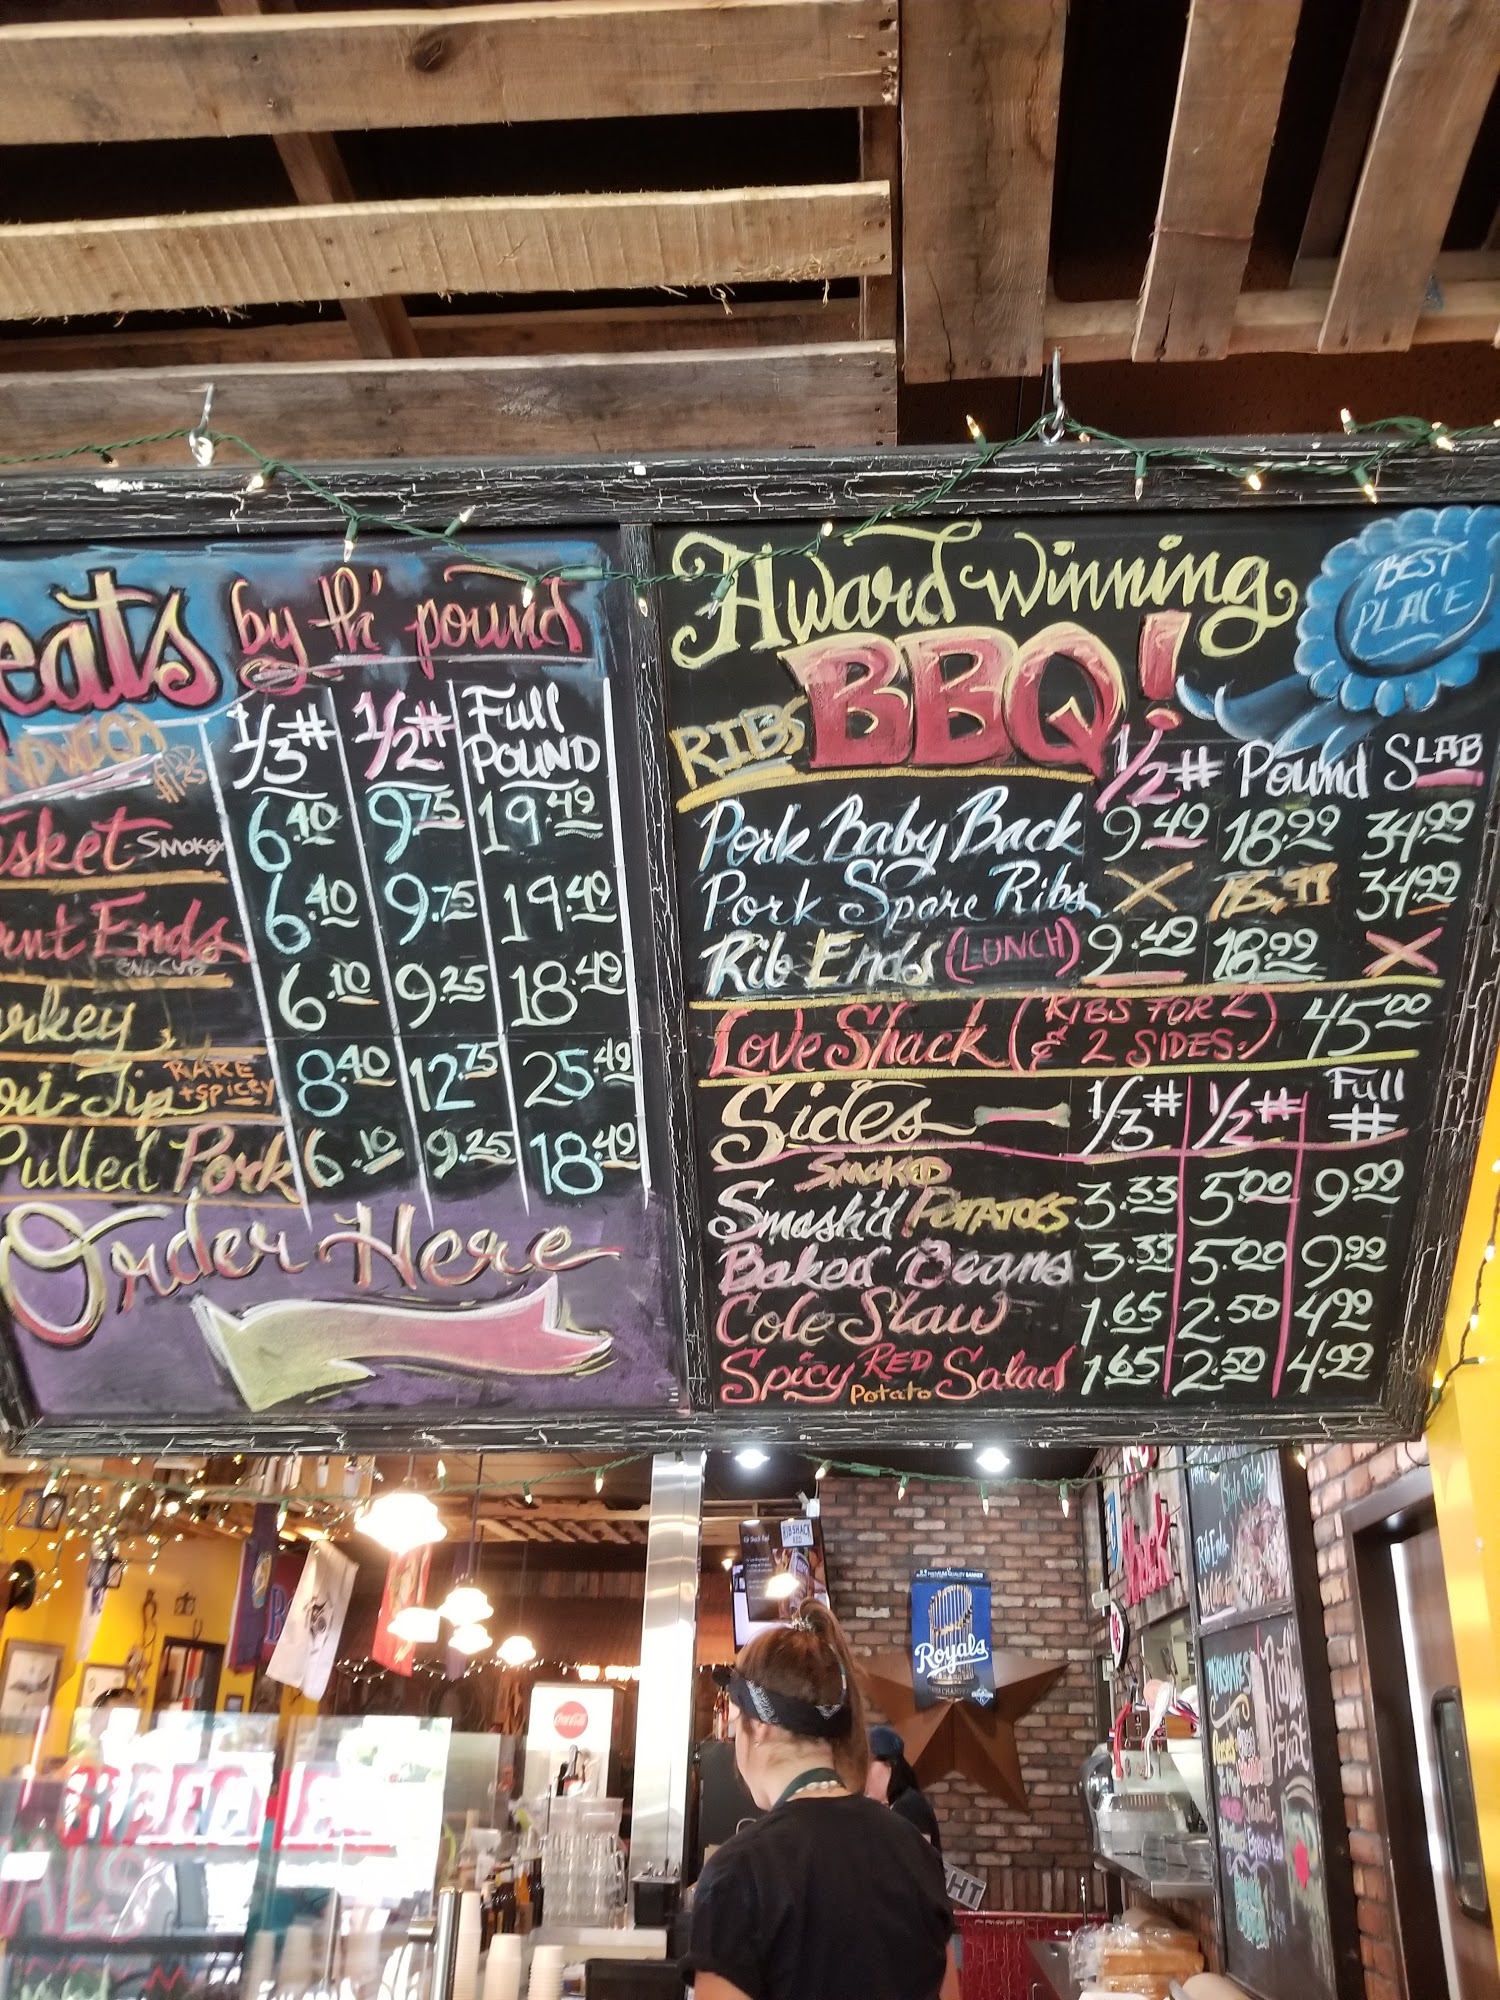 eats by th' pound
1/3# 1/2# Full Pound
isket Smokey 6.40 9.75 19.49
urnt Ends 6.40 9.75 19.49
urkey 6.10 9.25 18.49
ri-Tip RARE + SPICEY 8.40 12.75 25.49
Pulled Pork 6.10 9.25 18.49
Order Here
Award Winning
BBQ!
BEST PLACE
RIBS 1/2# Pound SLAB
Pork Baby Back 9.49 18.99 34.99
Pork Spare Ribs X 18.99 34.99
Rib Ends (LUNCH) 9.49 18.99 X
Love Shack (RIBS FOR 2 & 2 SIDES.) 45.00
Sides 1/3# 1/2# Full #
SMOKED
Smash'd POTATOES 3.33 5.00 9.99
Baked Beans 3.33 5.00 9.99
Cole Slaw 1.65 2.50 4.99
Spicy RED Potato Salad 1.65 2.50 4.99
RIBSHACK
Royals
Coca-Cola
Rib Ends
Style Ribs
Float
HT